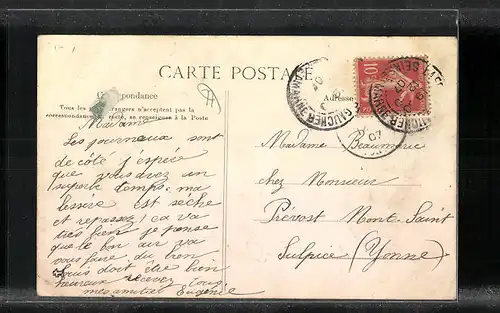 CARTE POSTALE
Correspondance
Tous les étrangers n'acceptent pas la
correspondance au recto, se renseigner à la Poste
Adresse
10
07
Madame
Les journeaux sont
de côté j'espère
que vous avez un
superbe temps. ma
lessive est sèche
et repassez! ca va
très bien je pense
que le bon air va
vous faire du bien
Louis doit être bien
heureux recevez tous
mes amitiés Eugenie
Madame Beaumerie
chez Monsieur
Prévost Mont-Saint
Sulpice (Yonne)